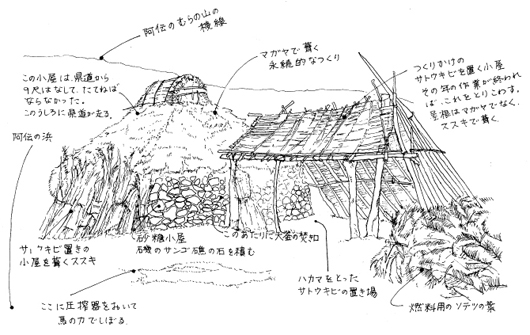 阿伝のむらの山の
稜線
マガヤで葺く
永続的なつくり
つくりかけの
サトウキビを置く小屋
その年の作業が終われ
ば、これをとりこわす。
屋根はマガヤでなく、
ススキで葺く。
この小屋は、県道から
9尺はなして、たてねば
ならなかった。
このうしろに県道が走る。
阿伝の浜
サトウキビ置きの
小屋を葺くススキ
砂糖小屋
磯のサンゴ礁の石を積む
このあたりに大釜の焚口
ハカマをとった
サトウキビの置き場
燃料用のソテツの葉
ここに圧搾器をおいて
馬の力でしぼる。